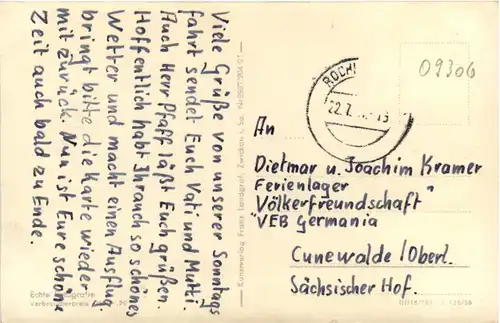 Viele Grüße von unserer Sonntags
fahrt sendet Euch Vati und Mutti.
Auch Herr Pfaff läßt Euch grüßen.
Hoffentlich habt Ihr auch so schönes
Wetter und macht einen Ausflug.
bringt bitte die Karte wieder
mit zurück. Nun ist Eure schöne
Zeit auch bald zu Ende.
Echte
09306
22.7.
An
Dietmar u. Joachim Kramer
Ferienlager
"Völkerfreundschaft"
"VEB Germania
Cunewalde /Oberl.
Sächsischer Hof.